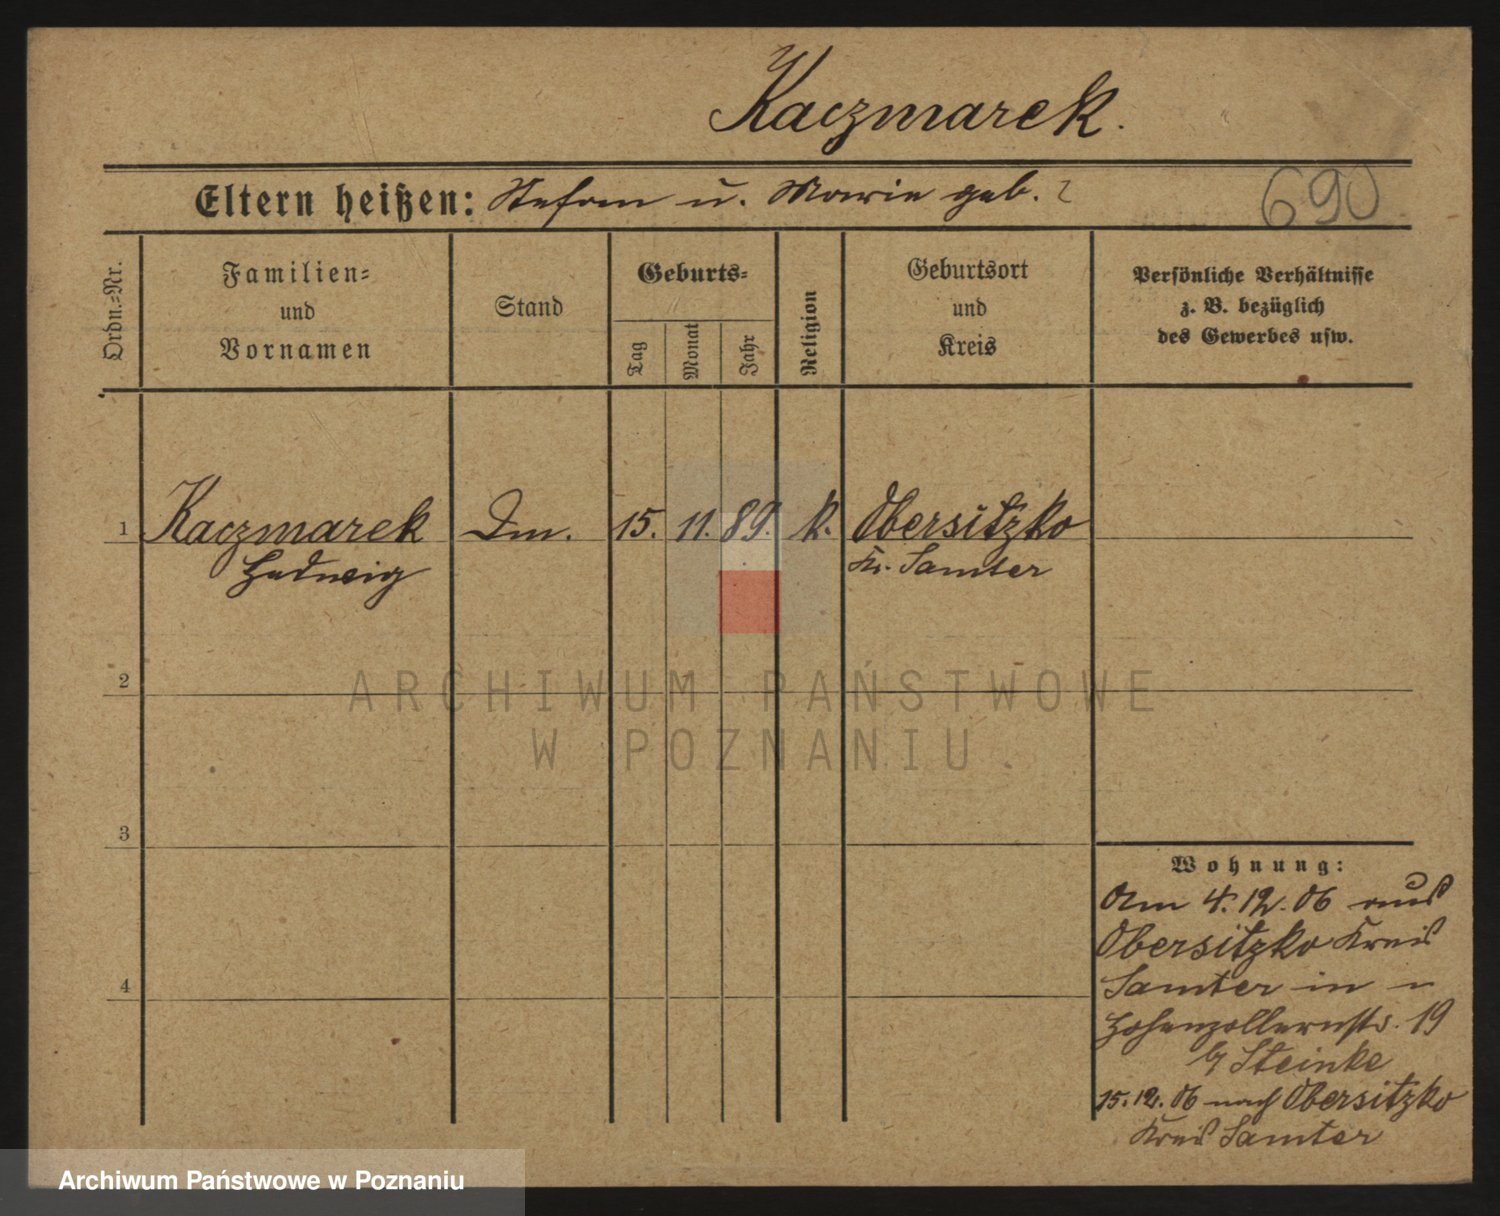 Kaczmarek.
Eltern heißen: Stefan u. Marie geb. ?
690
Ordn.=Nr.
Familien=
und
Vornamen
Stand
Geburts=
Tag
Monat
Jahr
Religion
Geburtsort
und
Kreis
Persönliche Verhältnisse
z. B. bezüglich
des Gewerbes usw.
1 Kaczmarek Dm. 15. 11. 89. k. Obersitzko
Hedwig Kr. Samter
2
ARCHIWUM PAŃSTWOWE
W POZNANIU.
3
Wohnung:
Am 4.12.06 aus
Obersitzko Kreis
4
Samter in
Hohenzollernstr. 19
b/ Steinke
15.12.06 nach Obersitzko
Kreis Samter
Archiwum Państwowe w Poznaniu